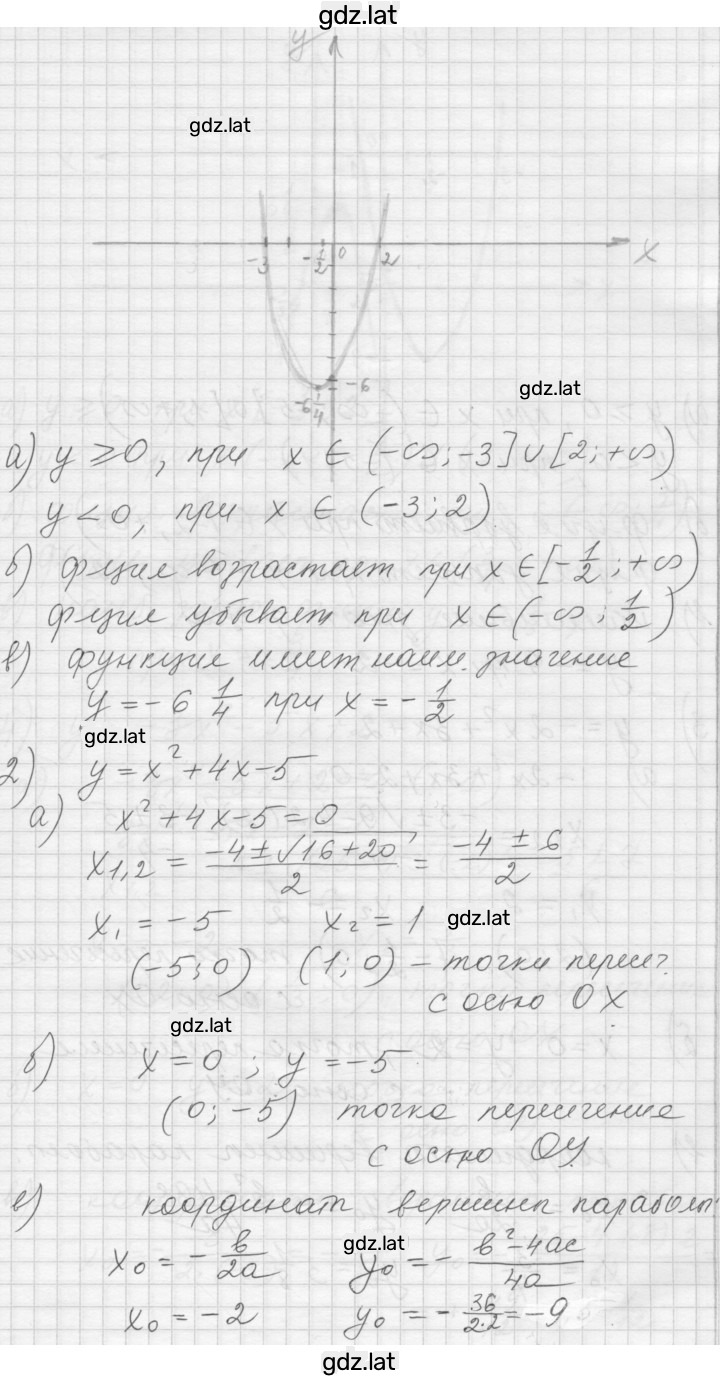 gdz.lat
y
gdz.lat
-3 -1/2 0 2 x
-6
-6 1/4
gdz.lat
а) y ⩾ 0, при x ∈ (-∞; -3] ∪ [2; +∞)
y < 0, при x ∈ (-3; 2)
б) фция возрастает при x ∈ [-1/2; +∞)
фция убывает при x ∈ (-∞; 1/2)
в) функция имеет наим. значение
y = -6 1/4 при x = -1/2
gdz.lat
2) y = x² + 4x - 5
а) x² + 4x - 5 = 0
x₁,₂ = (-4 ± √(16 + 20))/2 = (-4 ± 6)/2
x₁ = -5 x₂ = 1 gdz.lat
(-5; 0) (1; 0) - точки пересеч.
с осью OX
gdz.lat
б) x = 0; y = -5
(0; -5) точка пересечение
с осью OY.
в) координат вершины параболы
x₀ = -в/2a gdz.lat y₀ = -(в² - 4ac)/4a
x₀ = -2 y₀ = -36/2·2 = -9
gdz.lat